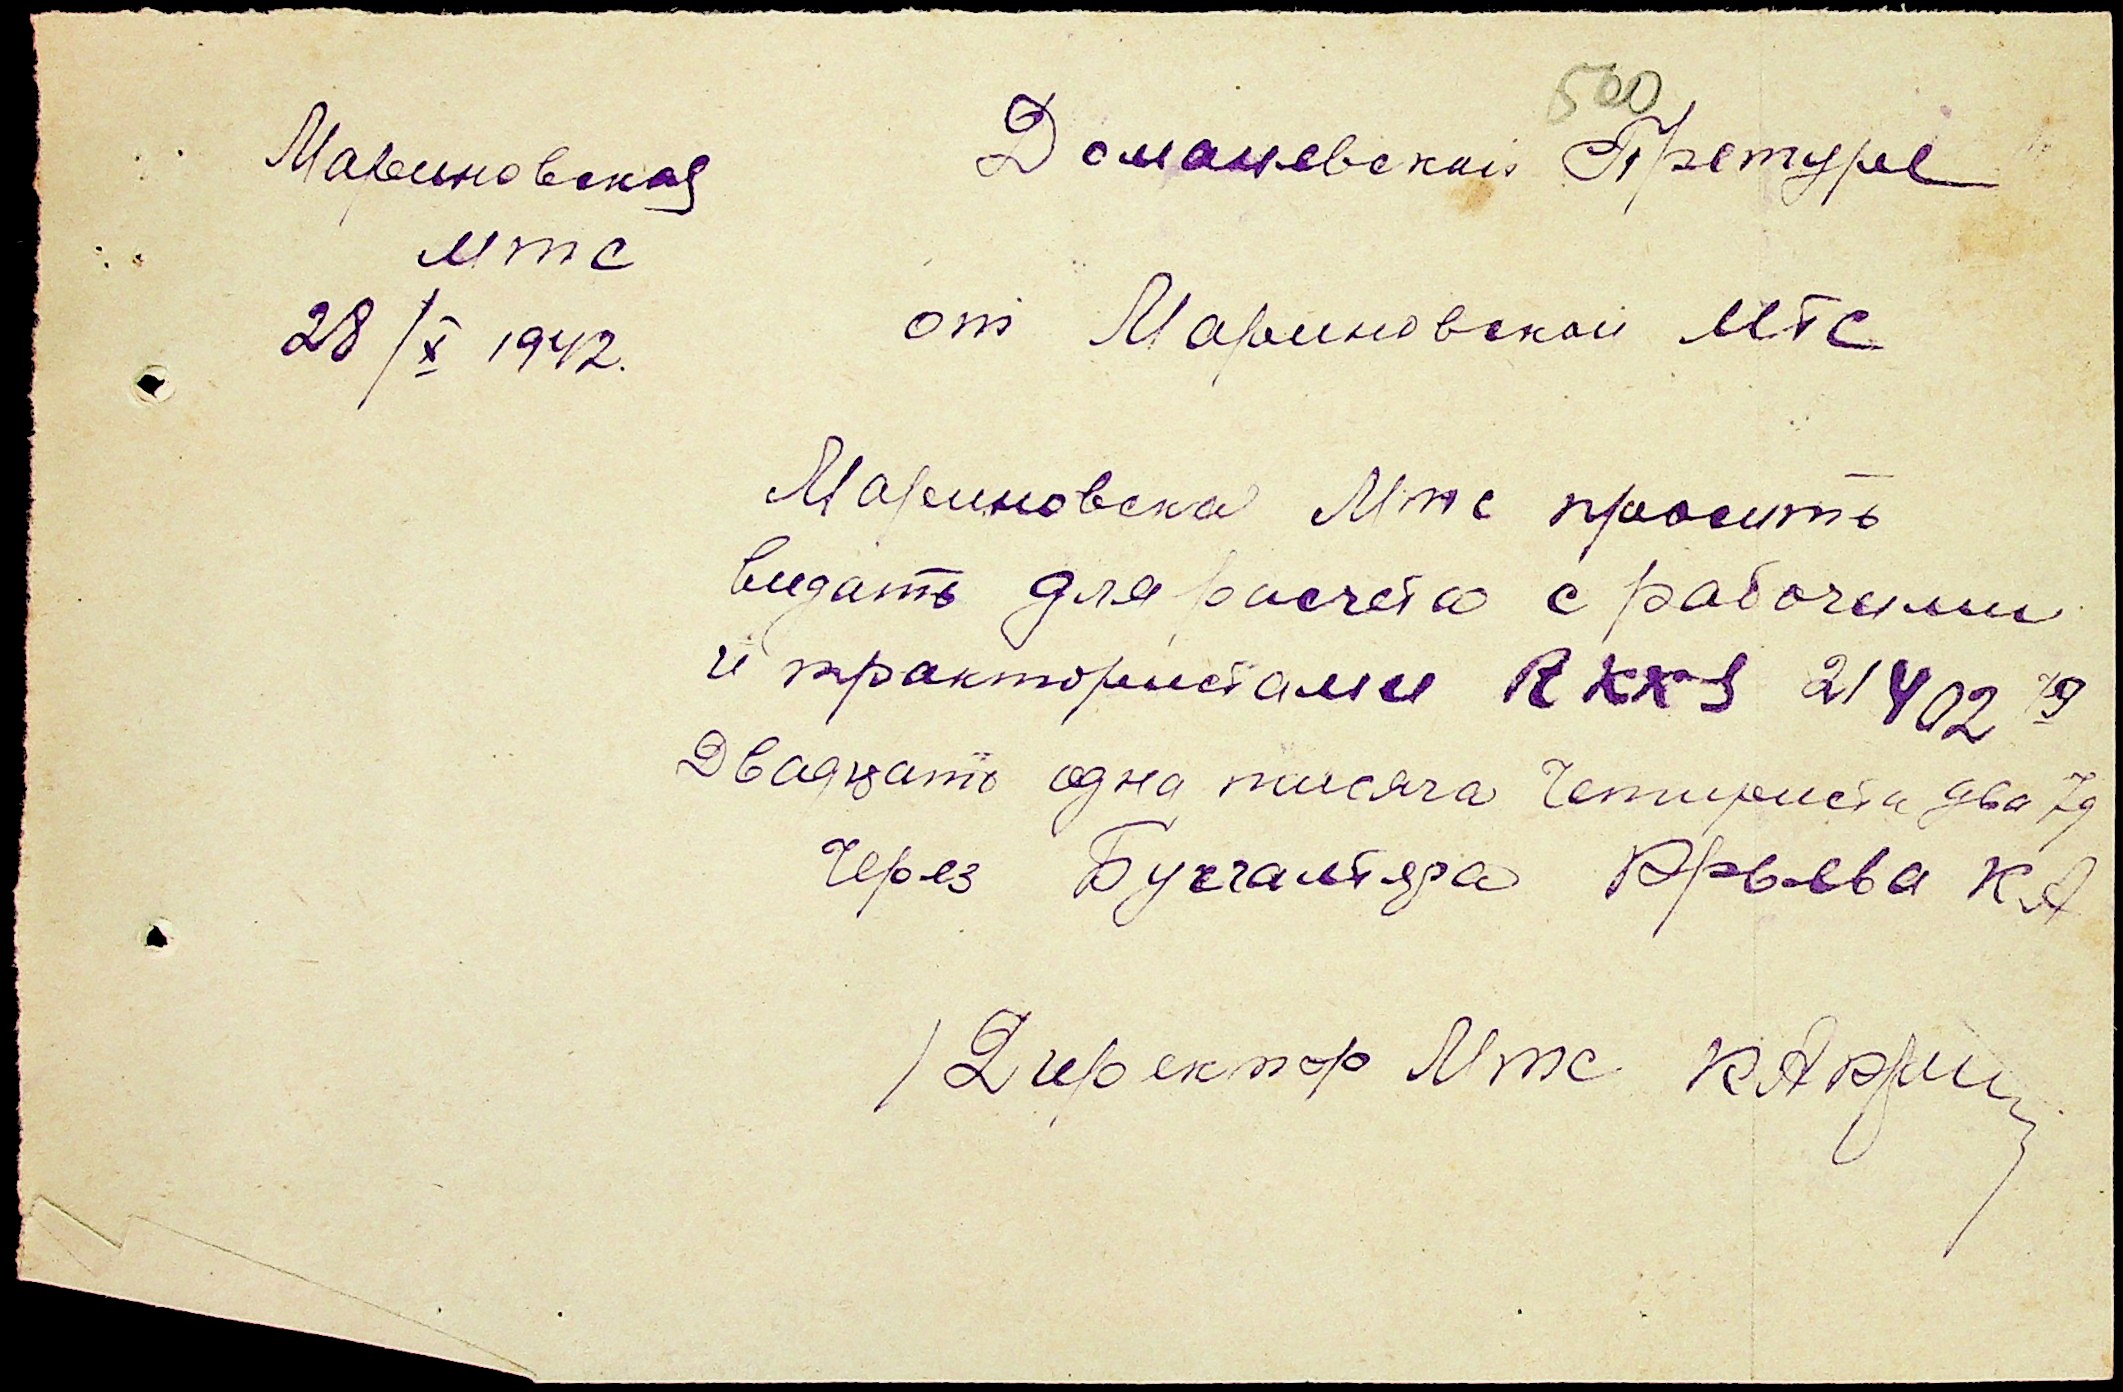 500
Мариновская
МТС
28/X 1942.
Доманевской Претуре
от Мариновской МТС
Мариновска Мтс просить
видать для расчета с рабочими
и трактористами RKKS 21402 79
Двадцать одна тисяча Четириста два 79
Через Бухгалтера К А
/ Директор Мтс